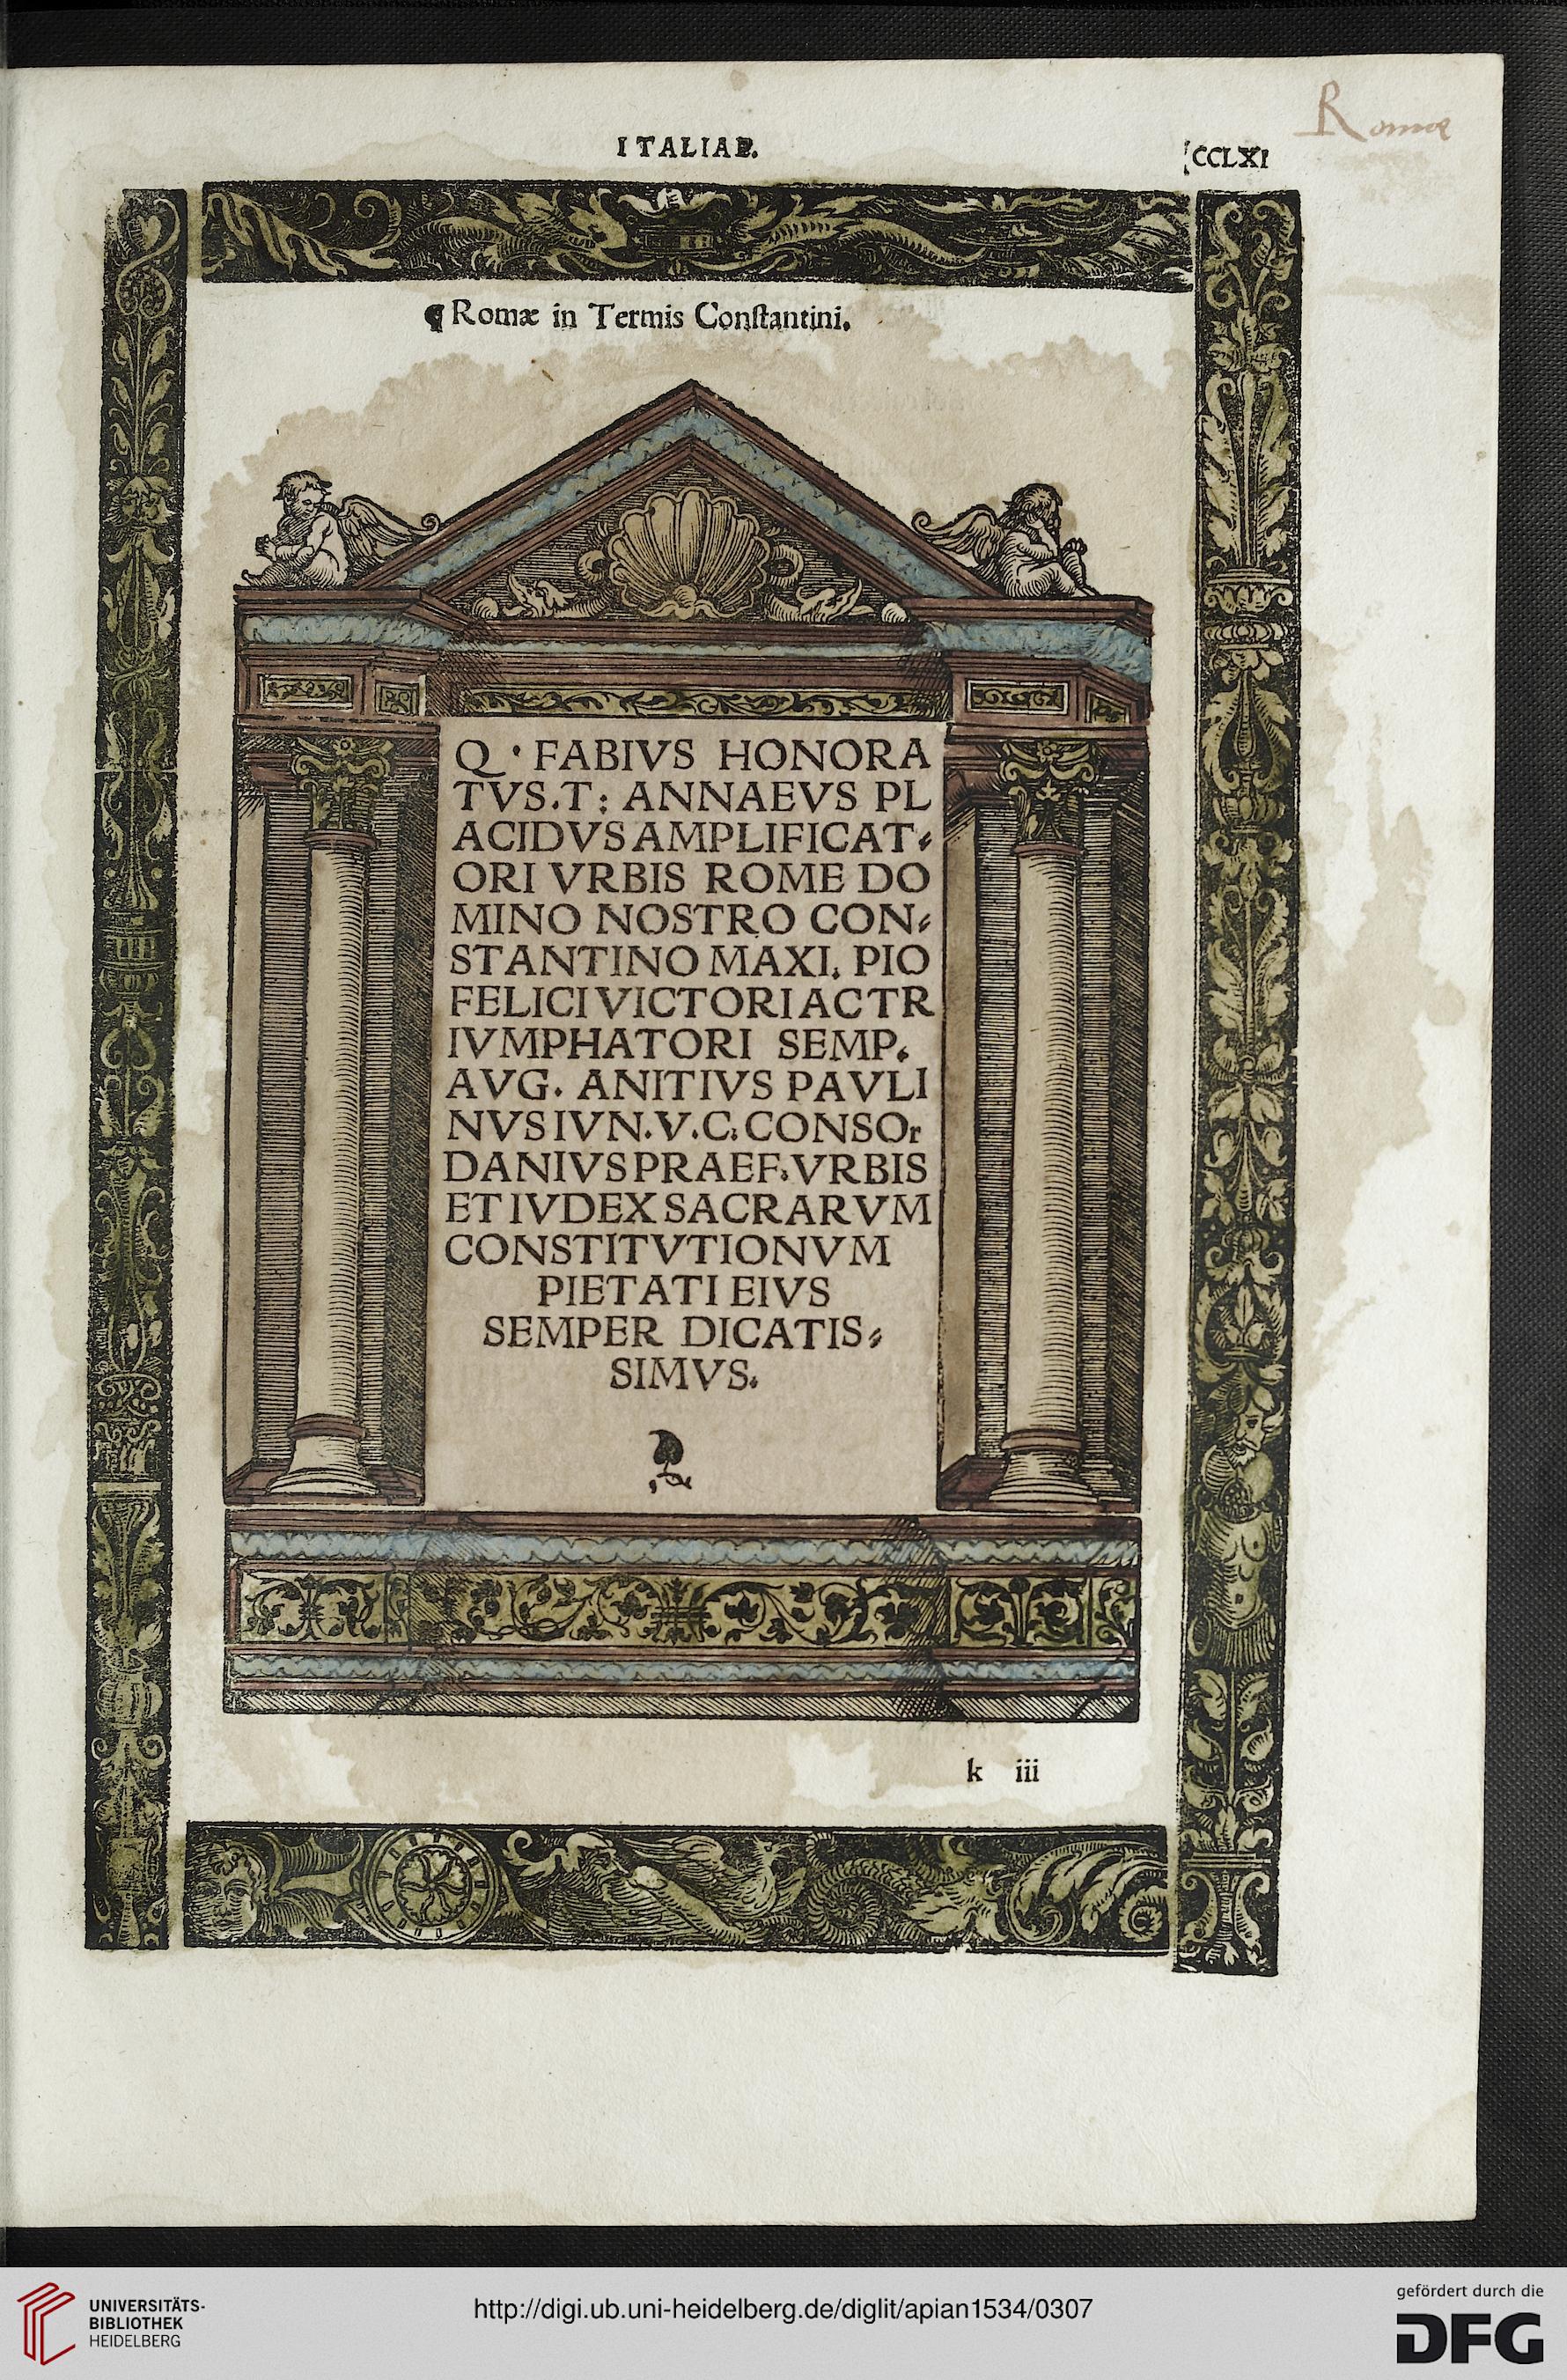 Romæ
ITALIAE.
CCLXI
¶ Romæ in Termis Conſtantini.
Q · FABIVS HONORA
TVS.T: ANNAEVS PL
ACIDVS AMPLIFICAT⸗
ORI VRBIS ROME DO
MINO NOSTRO CON⸗
STANTINO MAXI. PIO
FELICI VICTORI AC TR
IVMPHATORI SEMP.
AVG. ANITIVS PAVLI
NVS IVN.V.C. CONSOr
DANIVS PRAEF. VRBIS
ET IVDEX SACRARVM
CONSTITVTIONVM
PIETATI EIVS
SEMPER DICATIS⸗
SIMVS.
k iii
UNIVERSITÄTS-
BIBLIOTHEK
HEIDELBERG
http://digi.ub.uni-heidelberg.de/diglit/apian1534/0307
gefördert durch die
DFG